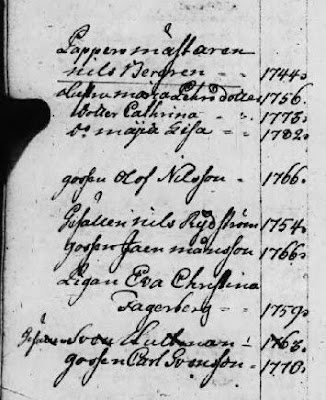 Pappersmästaren
nils Bergren - - 1744.
Hustru maria Pehrsdotter 1756.
Dotter Cathrina - 1778.
Do maja Lisa - - 1782.
gossen Olof Nilsson - 1766.
Gesällen nils Rydström 1754.
Gossen Jaen månsson 1766.
Pigan Eva Christina
Fagerberg - - 1759.
Sven Lultman - 1763.
gossen Carl Svensson - 1770.